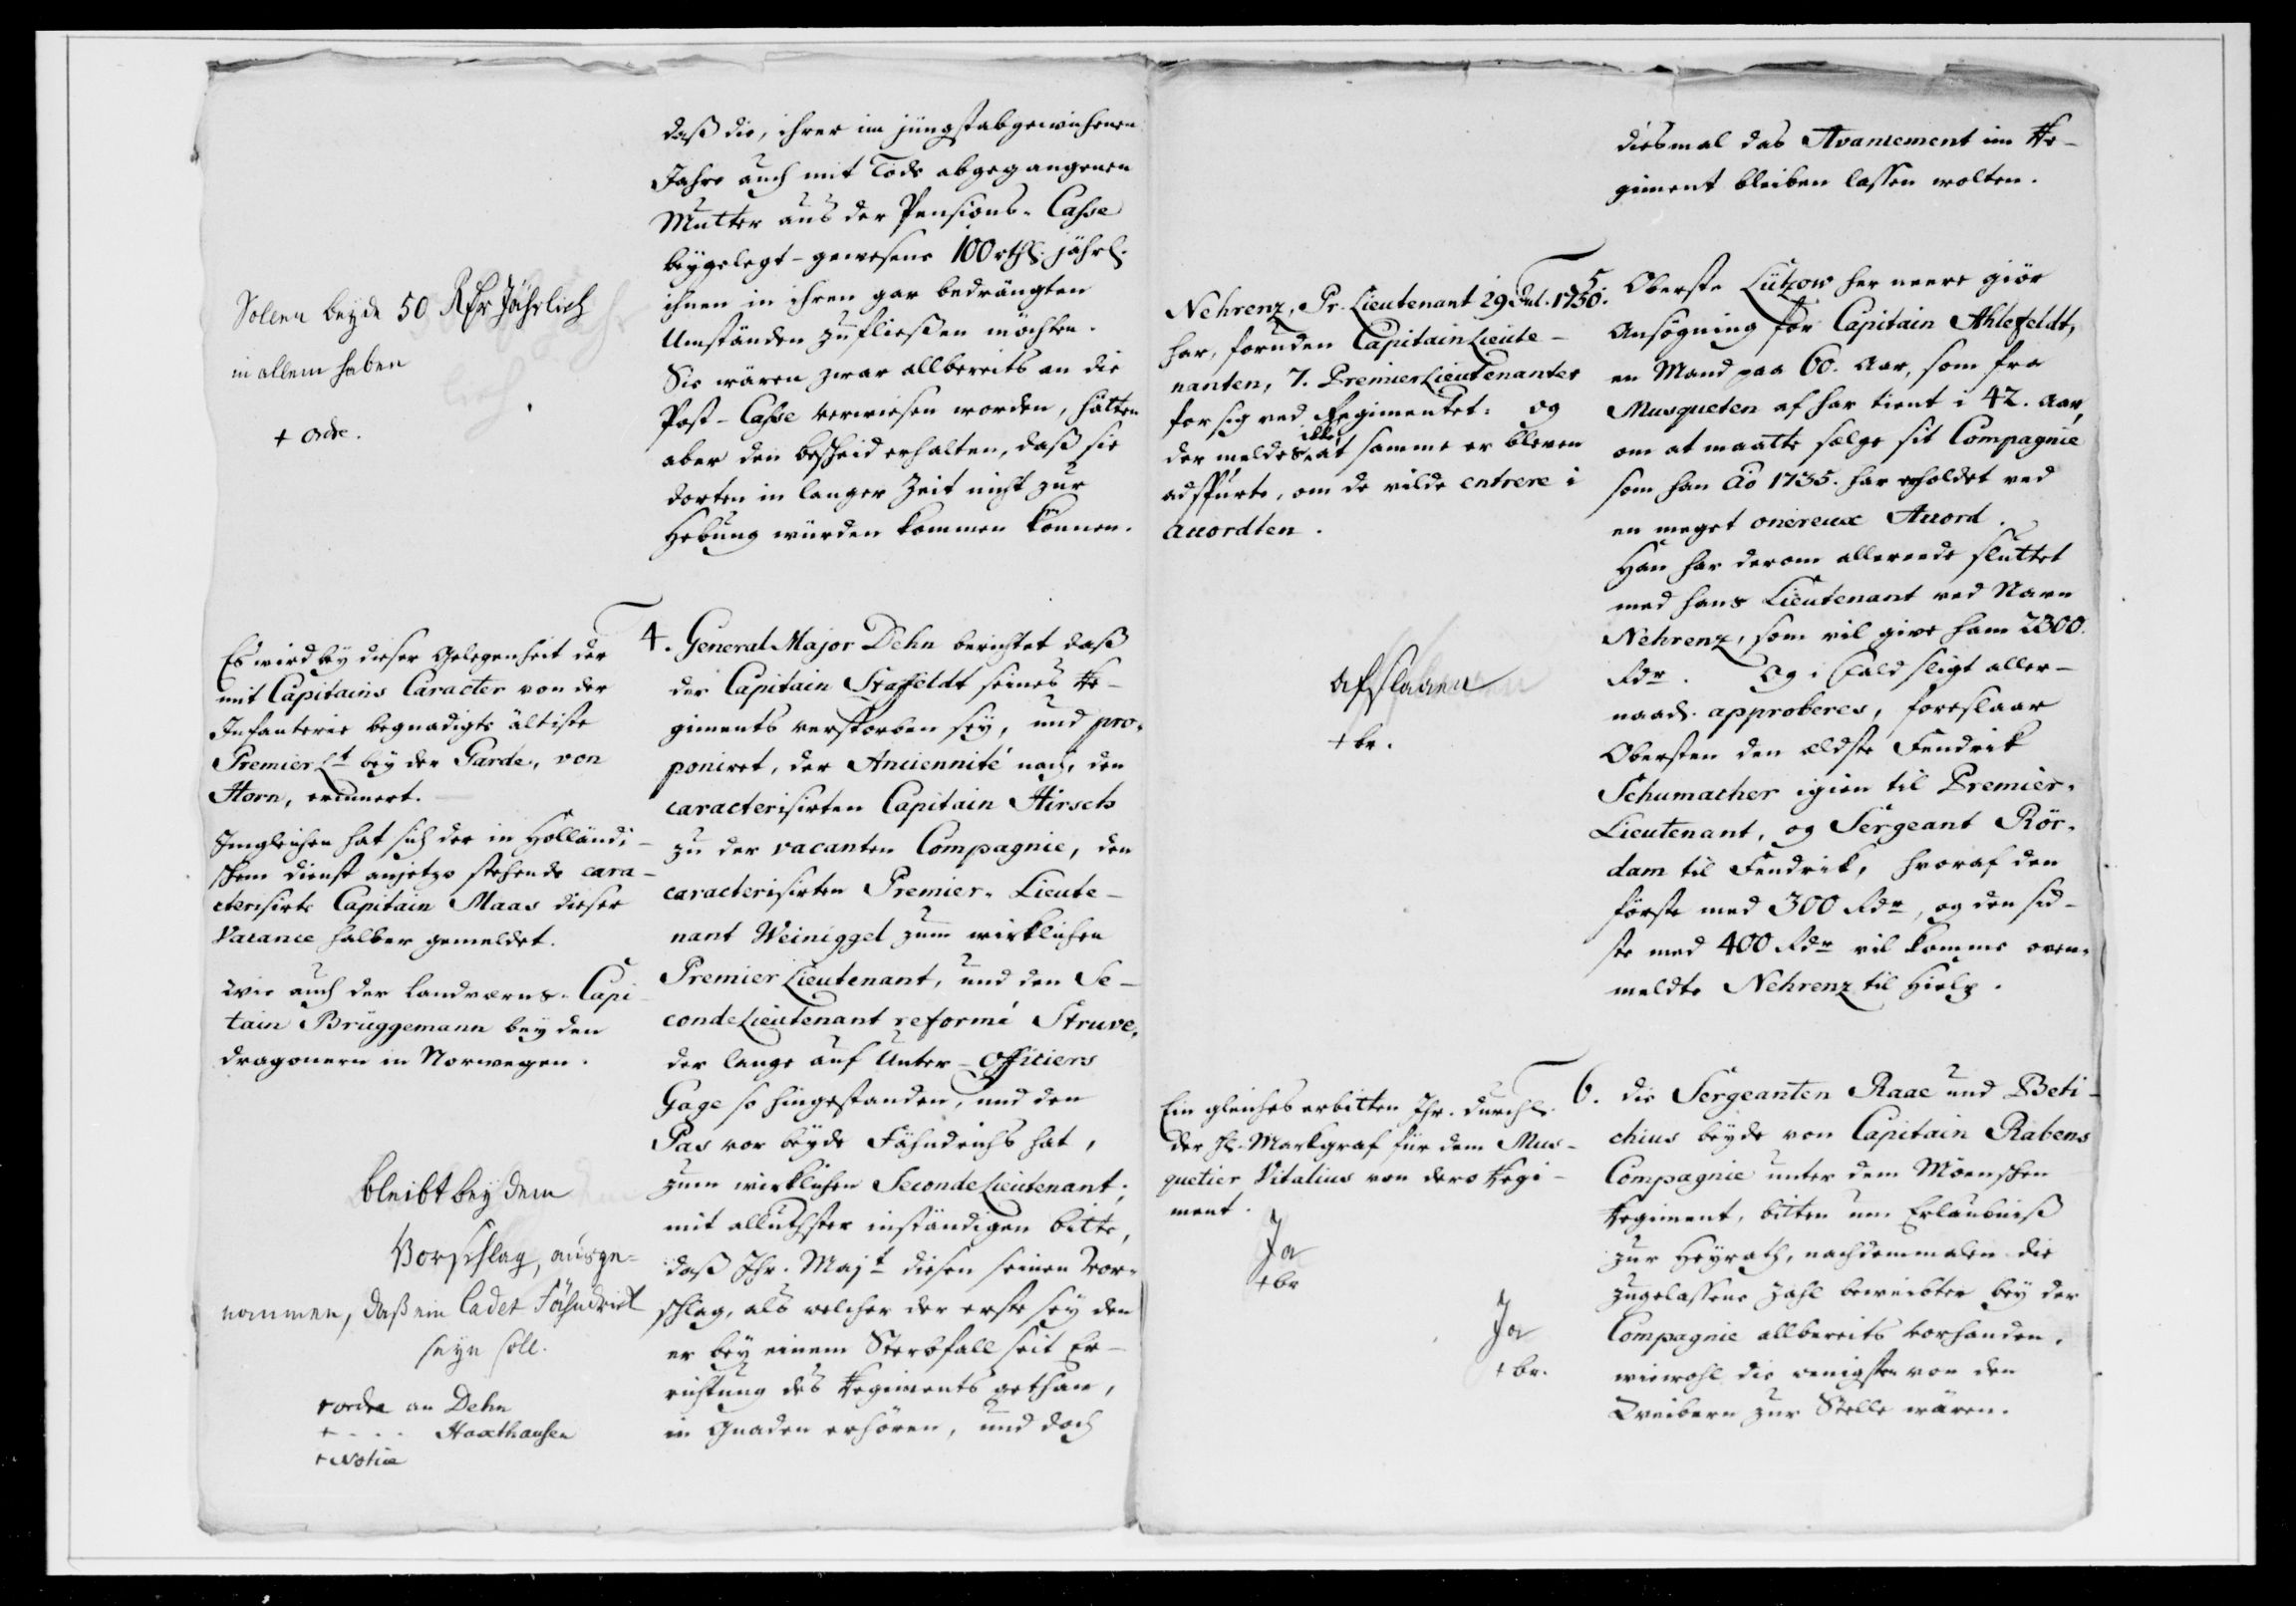 daß die, ihrer im jüngstabgewichenen
Jahre auch mit Tode abgegangenen
Mutter aus der Pensions-Casse
beygelegt-gewesene 100 rthl. jährl.
ihnen in ihren gar bedrängten
Umständen zufließen möchten.
Sie wären zwar allbereits an die
Post-Casse verwiesen worden, hätten
aber den bescheid erhalten, daß sie
dorten in langer Zeit nicht zur
Hebung würden kommen können.
Sollen beyde 50 Rthr Jährlich
in allem haben
+ Ordre.
4. General Major Dehn berichtet daß
der Capitain Staffeldt seines Re-
giments verstorben sey, und pro-
poniret, der Anciennité nach, den
caracterisirten Capitain Hirsch
zu der vacanten Compagnie, den
caracterisirten Premier-Lieute-
nant Weiniggel zum wirklichen
Premier Lieutenant, und den Se-
conde Lieutenant reformé Struve,
der lange auf Unter-Officiers
Gage so hingestanden, und den
Pas vor beyde Fähndrichs hat,
zum wirklichen Seconde Lieutenant;
mit alluthster inständigen bitte,
daß Ihr. Majt diesen seinen Vor-
schlag, als welcher der erste sey den
er bey einem Sterbfall seit Er-
richtung des Regiments gethan,
in Gnaden erhören, und doch
Es wird bey dieser Gelegenheit der
mit Capitains Caracter von der
Infanterie begnadigte ältiste
Premier Lt bey der Garde, von
Horn, erinnert.
Imgleichen hat sich der in Holländi-
schem dienst anjetzo stehende cara-
cterisirte Capitain Maas dieser
Vacance halber gemeldet.
wie auch der landværns-Capi-
tain Brüggemann bey den
dragonern in Norwegen.
bleibt bey dem
Vorschlag, ausge-
nommen, daß ein Cadet Fähndrick
seyn soll.
+ ordre an Dehn
+ .... Haxthausen
+ Notice
diesmal das Avancement im Re-
giment bleiben lassen wolten.
5. Oberste Lützow her neere giör
Ansögning for Capitain Ahlefeldt,
en Mand paa 60. Aar, som fra
Musqueten af har tient i 42. Aar,
om at maatte sælge sit Compagnie
som han Ao 1735. har erholdet ved
en meget onereux Accord.
Han har derom allereede sluttet
med hans Lieutenant ved Navn
Nehrenz, som vil give ham 2300.
Rdr. Og i Fald sligt aller-
naad. approberes, foreslaar
Obersten den ældste Fendrik
Schumacher igien til Premier-
Lieutenant, og Sergeant Rör-
dam til Fendrik, hvoraf den
förste med 300 Rdr, og den sid-
ste med 400 Rdr vil komme oven-
meldte Nehrenz til Hielp.
Nehrenz, Pr. Lieutenant 29 Jul. 1750.
har, foruden Capitain Lieute-
nanten, 7. Premier Lieutenanter
for sig ved Regimentet: og
der meldes ikke, at samme er bleven
adspurte, om de vilde entrere i
Accordten.
afslaaeu
+ br.
6. die Sergeanten Raae und Beti-
chius beyde von Capitain Rabens
Compagnie unter dem Möenschen
Regiment, bitten um Erlaubniß
zur Heyrath, nachdemmalen die
zugelassene Zahl beweibter bey der
Compagnie allbereits vorhanden,
wiewohl die wenigste von den
Weibern zur Stelle wären.
Ein gleiches erbitten Ihr. Durchl.
der H. Markgraf für dem Mus-
quetier Vitalius von dero Regi-
ment.
Ja
+ br
Ja
+ br.